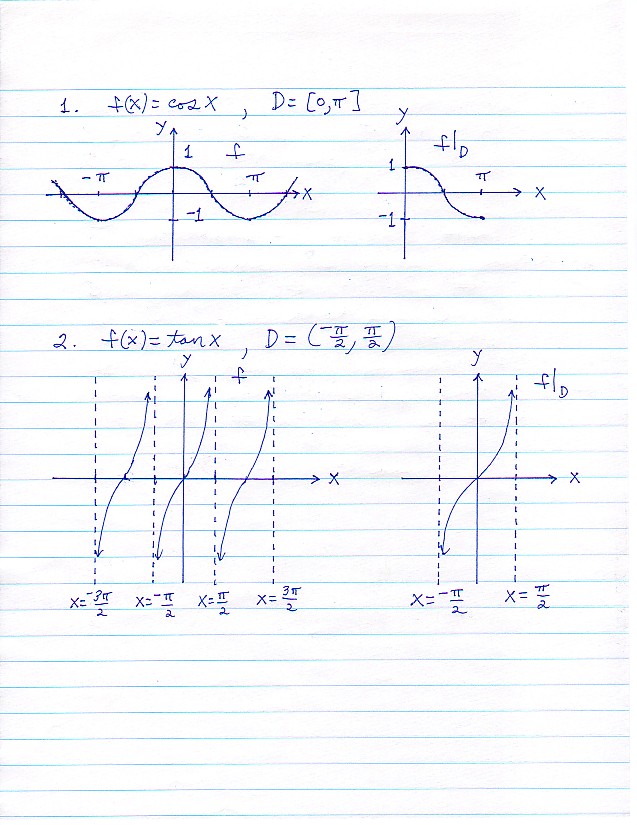 1. f(x) = cos x , D = [0, π]
y 1 f -π π x -1
y f|_D 1 π x -1
2. f(x) = tan x , D = (-π/2, π/2)
y f x
x = -3π/2 x = -π/2 x = π/2 x = 3π/2
y f|_D x
x = -π/2 x = π/2